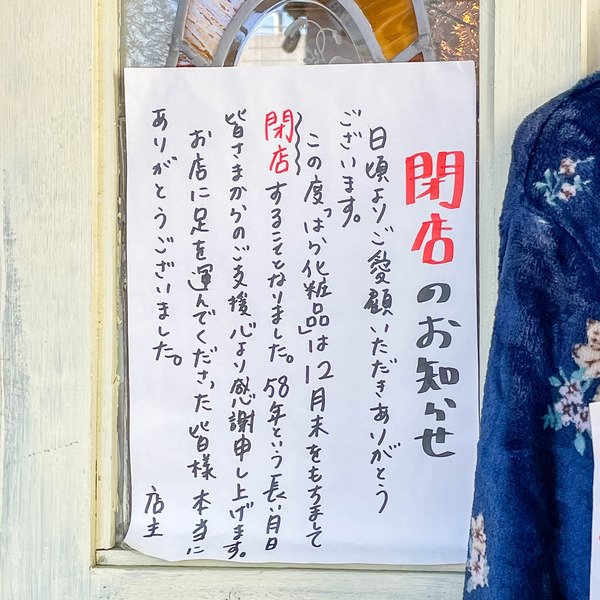 閉店のお知らせ
日頃よりご愛顧いただきありがとう
ございます。
この度「はら化粧品」は12月末をもちまして
閉店することとなりました。58年という長い月日
皆さまからのご支援心より感謝申し上げます。
お店に足を運んでくださった皆様 本当に
ありがとうございました。
店主